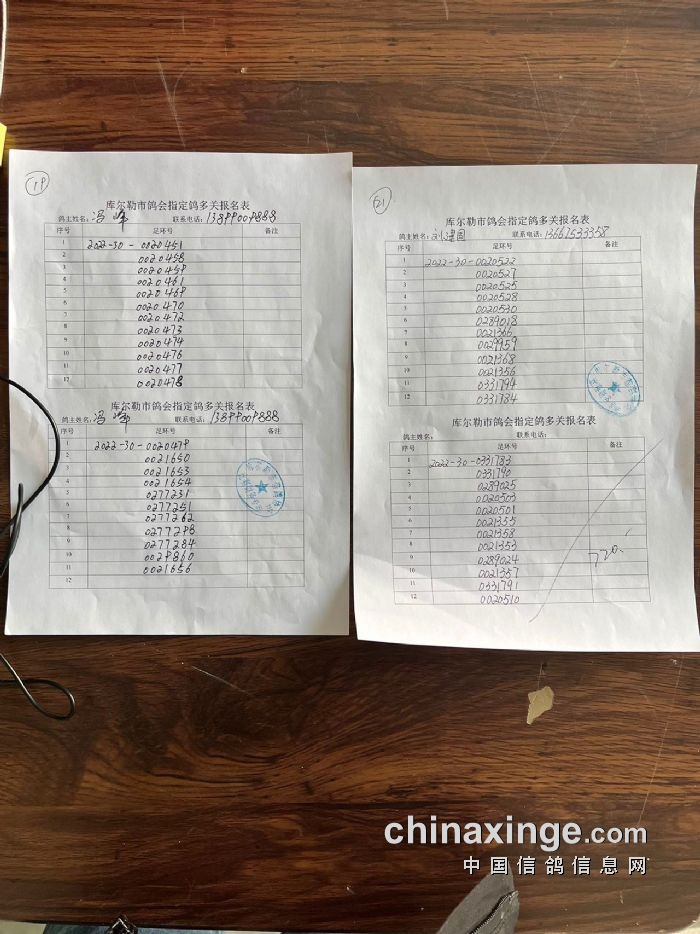 19
库尔勒市鸽会指定鸽多关报名表
鸽主姓名: 冯峰 联系电话: 13899009888
序号 足环号 备注
1 2022-30-0020451
2 0020458
3 0020459
4 0020461
5 0020469
6 0020470
7 0020472
8 0020473
9 0020474
10 0020476
11 0020477
12 0020478
库尔勒市鸽会指定鸽多关报名表
鸽主姓名: 冯峰 联系电话: 13899009888
序号 足环号 备注
1 2022-30-0020479
2 0021650
3 0021653
4 0021654
5 0277231
6 0277251
7 0277262
8 0277298
9 0277284
10 0029860
11 0021656
12
21
库尔勒市鸽会指定鸽多关报名表
鸽主姓名: 建国 联系电话: 13667533358
序号 足环号 备注
1 2022-30-0020522
2 0020527
3 0020525
4 0020528
5 0020530
6 0289018
7 0021366
8 0029959
9 0021368
10 0021356
11 0331794
12 0331784
库尔勒市鸽会指定鸽多关报名表
鸽主姓名: 联系电话:
序号 足环号 备注
1 2022-30-0331783
2 0331790
3 0289025
4 0020503
5 0020501
6 0021355
7 0021358
8 0021353
9 0289024
10 0021357
11 0331791
12 0020510
chinaxinge.com
中国信鸽信息网